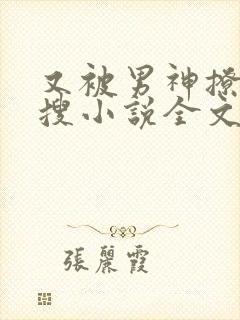 又被男神撩
搜小說全文
張麗霞